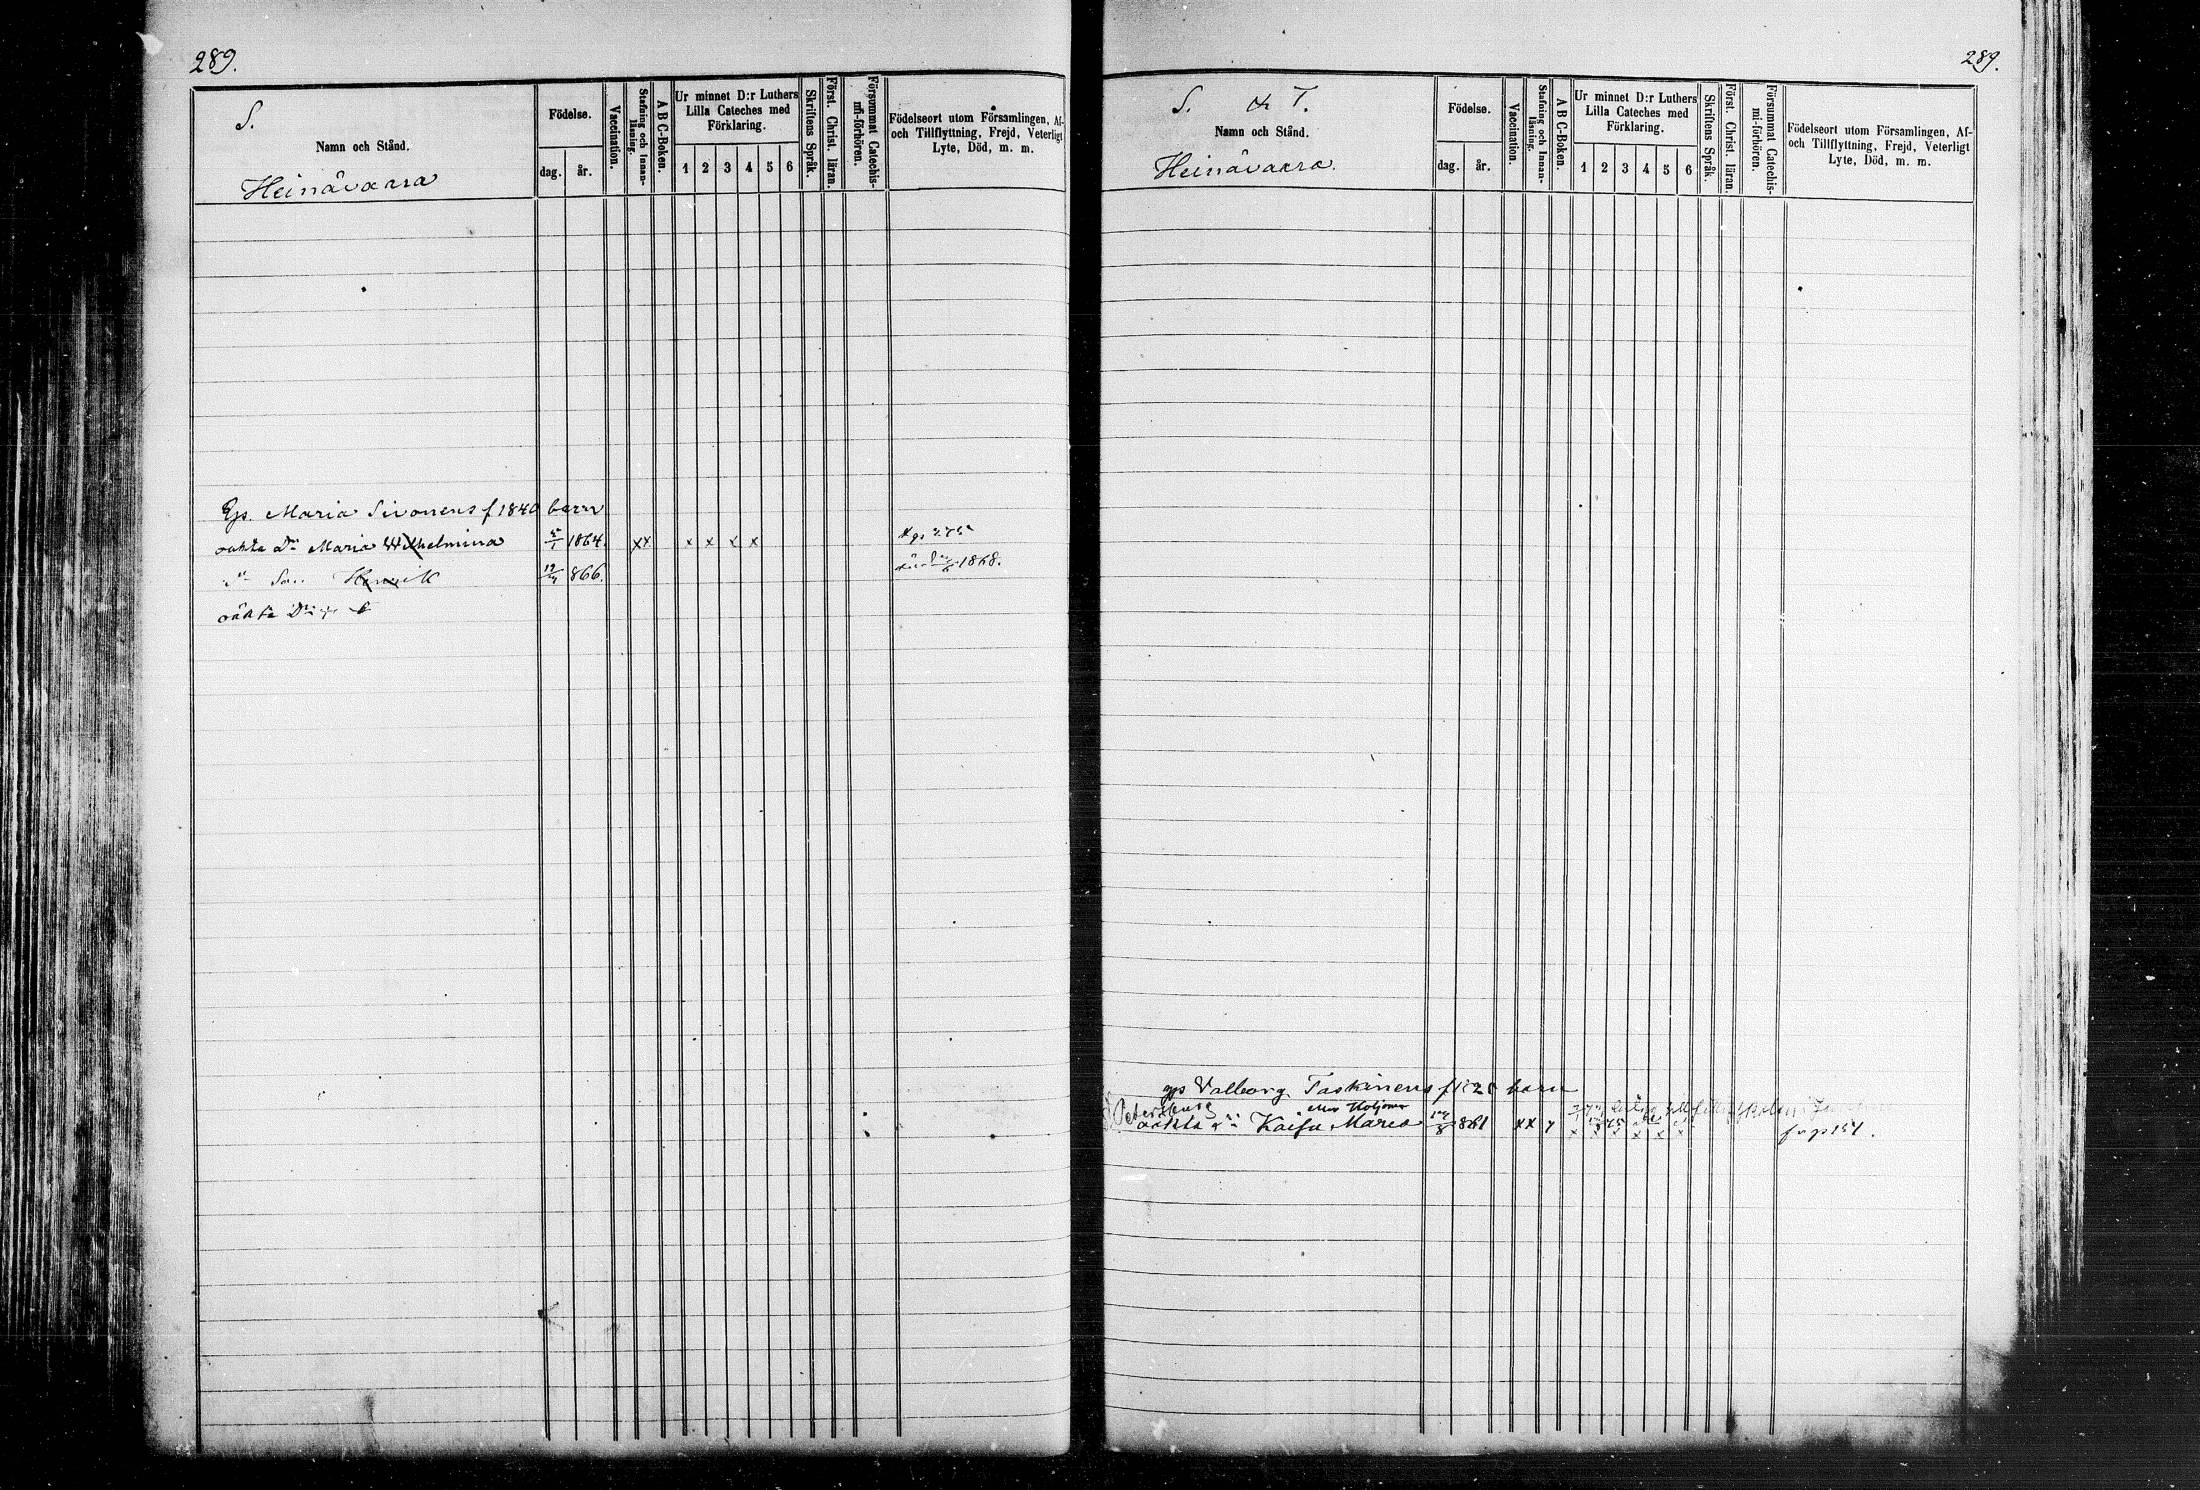 289.
S.
Namn och Stånd.
Heinävaara
Födelse.
dag. år.
Vaccination.
Stafning och Innanläsning.
A B C-Boken.
Ur minnet D:r Luthers
Lilla Cateches med
Förklaring.
1 2 3 4 5 6
Skriftens Språk.
Först. Christ. läran.
Försummat Catechismi-förhören.
Födelseort utom Församlingen, Af-
och Tillflyttning, Frejd, Veterligt
Lyte, Död, m. m.
Maria Sivonens f 1840 barn
oäkta Maria Wilhelmina 1864. xx x x x x
Son Henrik 19 866. 1868.
oäkta
289.
S. T.
Namn och Stånd.
Heinävaara.
Födelse.
dag. år.
Vaccination.
Stafning och Innanläsning.
A B C-Boken.
Ur minnet D:r Luthers
Lilla Cateches med
Förklaring.
1 2 3 4 5 6
Skriftens Språk.
Först. Christ. läran.
Försummat Catechismi-förhören.
Födelseort utom Församlingen, Af-
och Tillflyttning, Frejd, Veterligt
Lyte, Död, m. m.
Valborg Taskinens barn
Petersburg
oäkta Kaisa Maria 861 xx x x x x x x